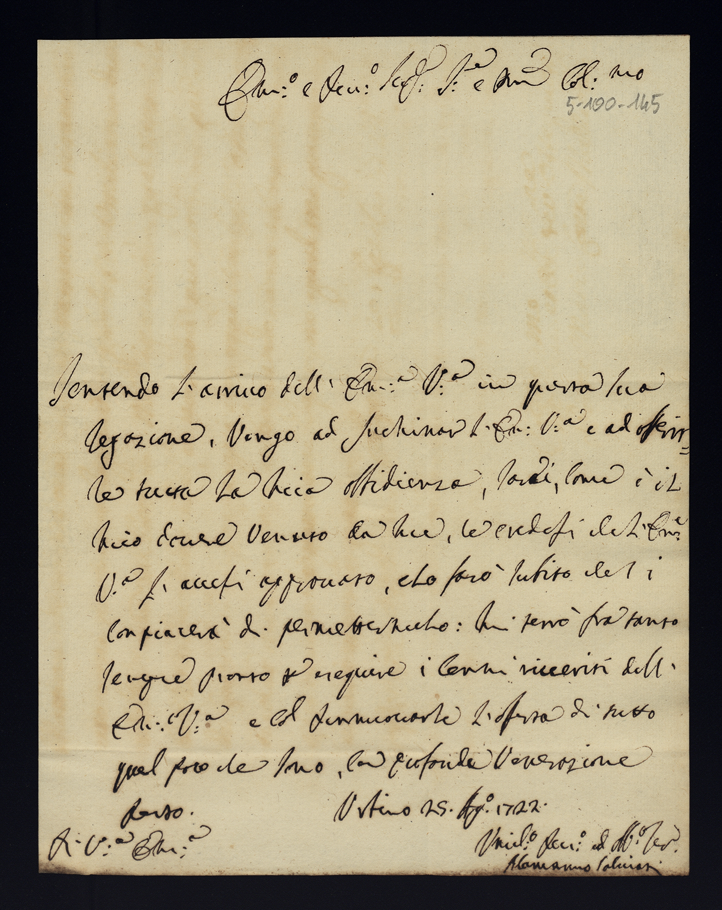 Em.o e Rev.o Sig.r S.re e P.rone Col.mo
5-100-145
Sentendo l'arrivo dell' Em.a V.a in questa sua
legazione, Vengo ad inchinar l'Em: V.a e ad offerir-
le tutta la mia ubbidienza, sarei, come è il
mio dovere Venuto da lei, se credessi che l'Em.a
V.a l' avesse approvato, e lo farò subito che si
compiacerà di permettermelo: mi terrò fra tanto
sempre pronto ad eseguire i Cenni riveriti dell'
Em.a V.a e col rinnovarle l'offerta di tutto
quel poco che sono, con profonda Venerazione
resto. Urbino 25. Ag.o 1722.
D. V.a Em.a
Umil.o Dev.o ed Obb.o Ser.
Alamanno Salviati